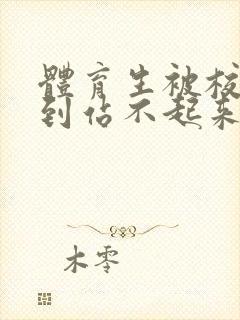 體育生被
到佔不起来
木零